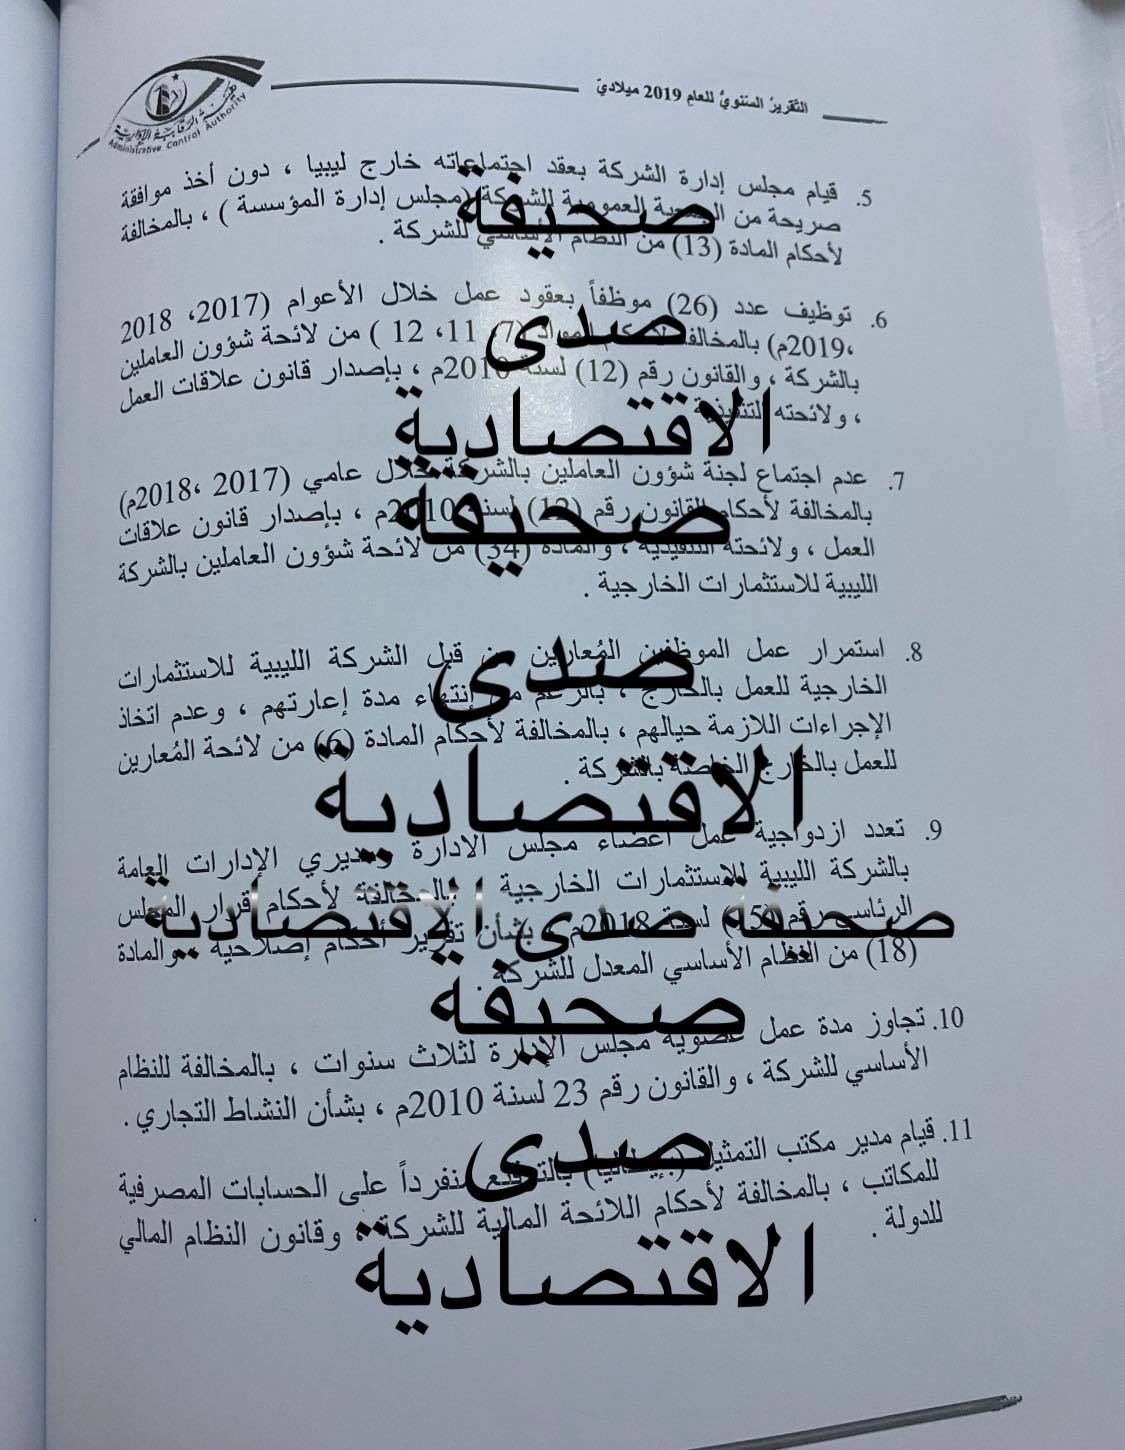 التقرير السنوي للعام 2019 ميلادي
هيئة الرقابة الإدارية
Administrative Control Authority
5. قيام مجلس إدارة الشركة بعقد اجتماعاته خارج ليبيا ، دون أخذ موافقة
صريحة من الجمعية العمومية للشركة (مجلس إدارة المؤسسة ) ، بالمخالفة
لأحكام المادة (13) من النظام الأساسي للشركة .
صحيفة
6. توظيف عدد (26) موظفاً بعقود عمل خلال الأعوام (2017، 2018
،2019م) بالمخالفة لأحكام المواد (7، 11، 12 ) من لائحة شؤون العاملين
بالشركة ، والقانون رقم (12) لسنة 2010م ، بإصدار قانون علاقات العمل
، ولائحته التنفيذية
صدى
الاقتصادية
7. عدم اجتماع لجنة شؤون العاملين بالشركة خلال عامي (2017 ،2018م)
بالمخالفة لأحكام القانون رقم (12) لسنة 2010م ، بإصدار قانون علاقات
العمل ، ولائحته التنفيذية ، والمادة (34) من لائحة شؤون العاملين بالشركة
الليبية للاستثمارات الخارجية .
صحيفة
8. استمرار عمل الموظفين المُعارين من قبل الشركة الليبية للاستثمارات
الخارجية للعمل بالخارج ، بالرغم من إنتهاء مدة إعارتهم ، وعدم اتخاذ
الإجراءات اللازمة حيالهم ، بالمخالفة لأحكام المادة (6) من لائحة المُعارين
للعمل بالخارج الخاصة بالشركة .
صدى
الاقتصادية
9. تعدد ازدواجية عمل أعضاء مجلس الادارة ومديري الإدارات العامة
بالشركة الليبية للاستثمارات الخارجية بالمخالفة لأحكام قرار المجلس
الرئاسي رقم لسنة 2018م بشأن تقرير أحكام إصلاحية والمادة
(18) من النظام الأساسي المعدل للشركة .
صحيفة صدى الاقتصادية
صحيفة
10. تجاوز مدة عمل عضوية مجلس الإدارة لثلاث سنوات ، بالمخالفة للنظام
الأساسي للشركة ، والقانون رقم 23 لسنة 2010م ، بشأن النشاط التجاري .
صدى
11. قيام مدير مكتب التمثيل (بإيطاليا) بالتوقيع منفرداً على الحسابات المصرفية
للمكاتب ، بالمخالفة لأحكام اللائحة المالية للشركة ، وقانون النظام المالي
للدولة .
الاقتصادية